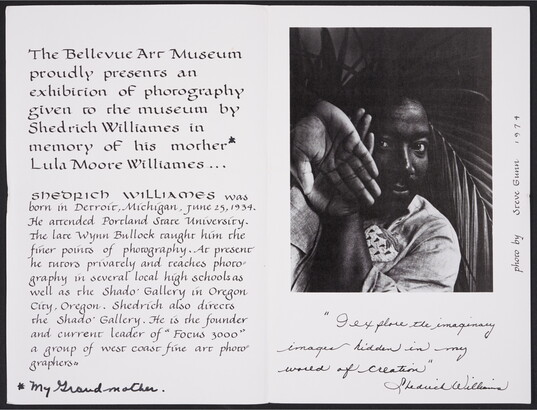 The Bellevue Art Museum
proudly presents an
exhibition of photography
given to the museum by
Shedrich Williames in
memory of his mother*
Lula Moore Williames...
SHEDRICH WILLIAMES was
born in Detroit, Michigan, June 25, 1934.
He attended Portland State University.
The late Wynn Bullock taught him the
finer points of photography. At present
he tutors privately and teaches photo-
graphy in several local high schools as
well as the Shado' Gallery in Oregon
City, Oregon. Shedrich also directs
the Shado' Gallery. He is the founder
and current leader of "Focus 3000"
a group of west coast fine art photo-
graphers
* My Grandmother.
photo by Steve Gunn 1974
"I explore the imaginary
images hidden in my
world of creation"
Shedrich Williames